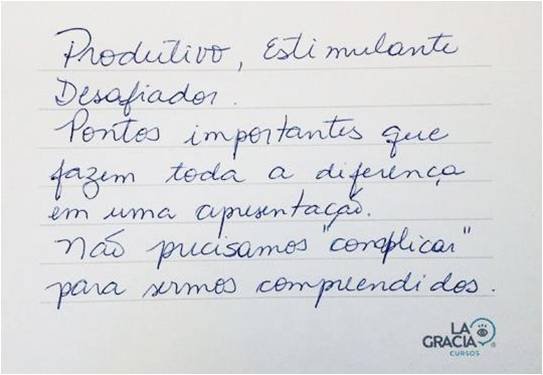 Produtivo, Estimulante
Desafiador.
Pontos importantes que
fazem toda a diferença
em uma apresentação.
Não precisamos "complicar"
para sermos compreendidos.
LA
GRACIA
CURSOS